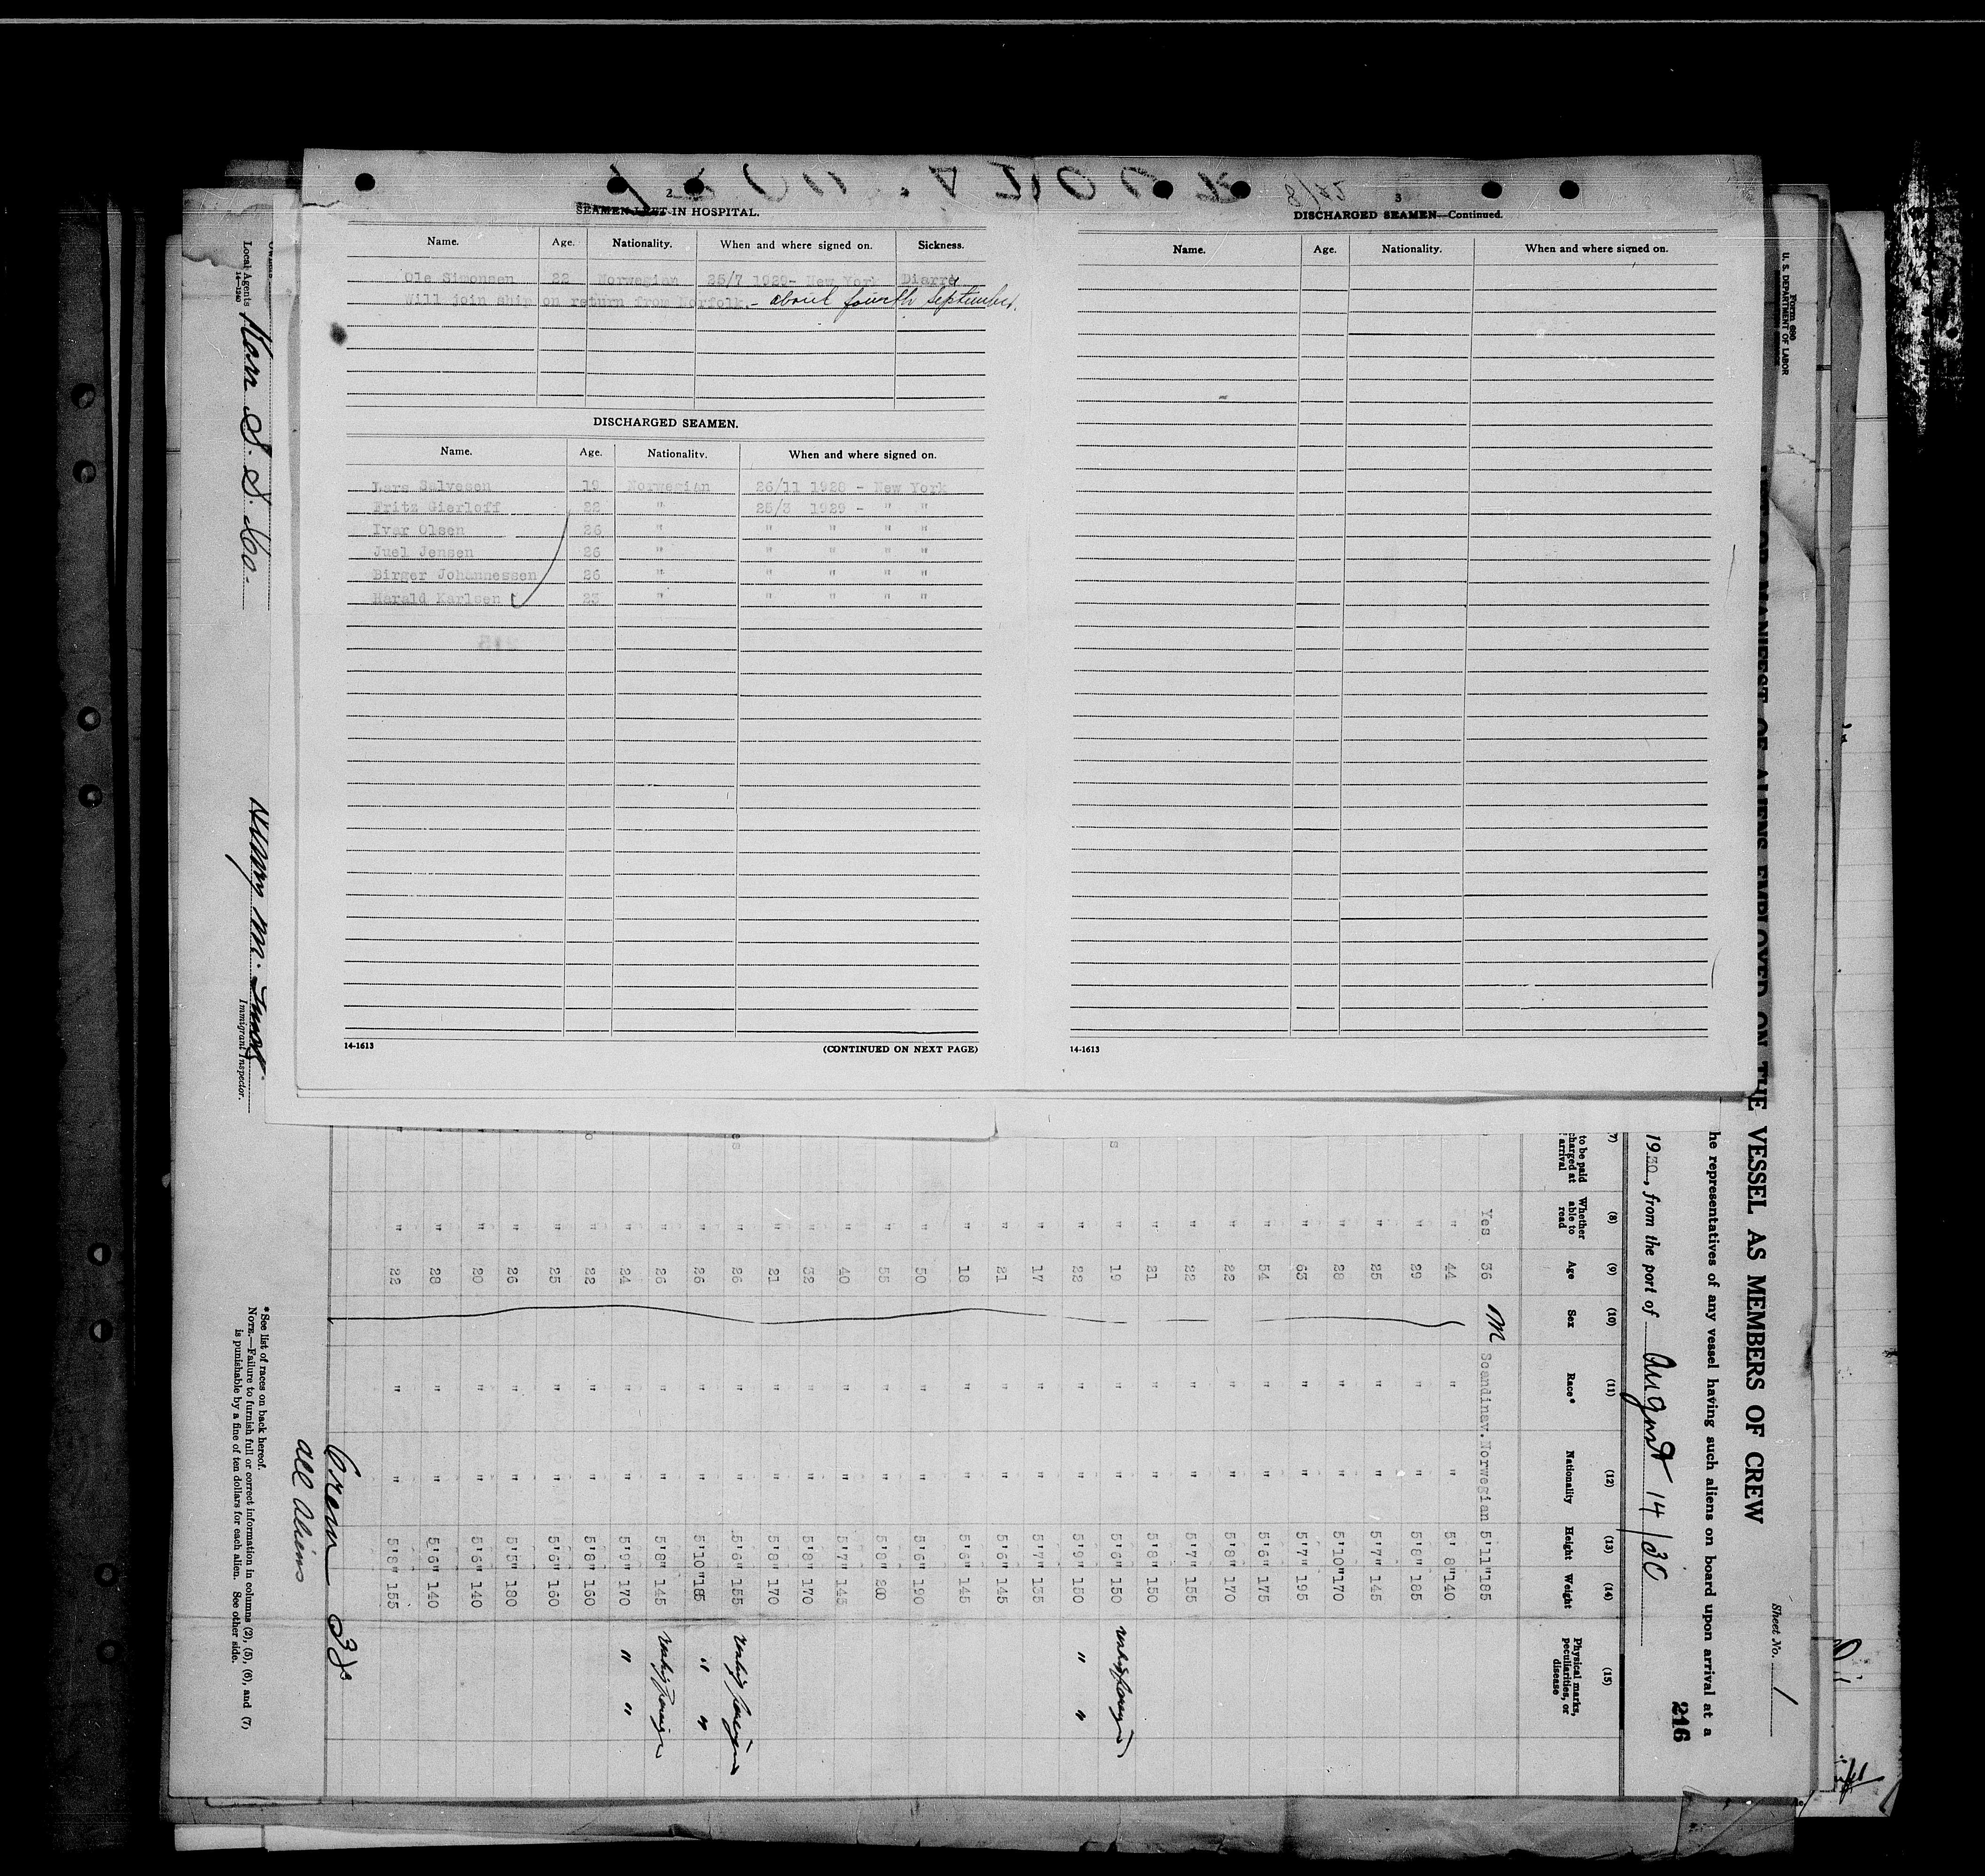 2
SEAMEN LEFT IN HOSPITAL.
Name. Age. Nationality. When and where signed on. Sickness.
Ole Simonsen 22 Norwegian 25/7 1929- New York Diarré
Will join ship on return from Norfolk.- about fourth September.
DISCHARGED SEAMEN.
Name. Age. Nationality. When and where signed on.
Lars Salvesen 19 Norwegian 26/11 1928 - New York
Fritz Gierloff 22 " 25/3 1929 - " "
Ivar Olsen 26 " " " " "
Juel Jensen 26 " " " " "
Birger Johannessen 26 " " " " "
Harald Karlsen 23 " " " " "
14-1613 (CONTINUED ON NEXT PAGE)
3
DISCHARGED SEAMEN—Continued.
Name. Age. Nationality. When and where signed on.
14-1613
Form 680
U. S. DEPARTMENT OF LABOR
Sheet No. 1
MANIFEST OF ALIENS EMPLOYED ON THE VESSEL AS MEMBERS OF CREW
he representatives of any vessel having such aliens on board upon arrival at a
216
1930, from the port of August 14/30
(7) (8) (9) (10) (11) (12) (13) (14) (15)
to be paid charged at arrival Whether able to read Age Sex Race* Nationality Height Weight Physical marks, peculiarities, or disease
Yes 36 M Scandinav. Norwegian 5'11" 185
" 44 " " 5'8" 140
" 29 " " 5'8" 185
" 25 " " 5'7" 145
" 28 " " 5'10" 170
" 63 " " 5'7" 195
" 54 " " 5'6" 175
" 22 " " 5'8" 170
" 22 " " 5'7" 155
" 21 " " 5'8" 150
" 19 " " 5'6" 150
" 22 " " 5'9" 150 " "
" 17 " " 5'7" 135
" 21 " " 5'6" 145
" 18 " " 5'6" 145
" 50 " " 5'6" 190
" 55 " " 5'8" 200
" 40 " " 5'7" 145
" 32 " " 5'8" 170
" 21 " " 5'8" 170
" 26 " " 5'6" 155
" 26 " " 5'10" 185 " "
" 26 " " 5'8" 145
" 24 " " 5'9" 170 " "
" 22 " " 5'8" 160
" 25 " " 5'6" 160
" 26 " " 5'5" 180
" 20 " " 5'6" 140
" 28 " " 5'6" 140
" 22 " " 5'8" 155
Crew 38
all Aliens
*See list of races on back hereof.
NOTE.—Failure to furnish full or correct information in columns (2), (5), (6), and (7)
is punishable by a fine of ten dollars for each alien. See other side.
Local Agents Kerr S. S. Co.
14-1240
Immigrant Inspector.